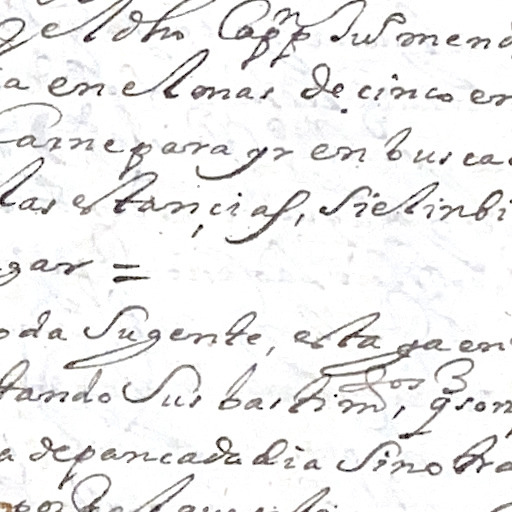 q el dho Capp.n Sus mend
ia en el mas de cinco en
Carne para yr en busca
las estancias, si el inbi
gar =
oda Su gente, esta ya en
tando Sus bastim.dos, q son 3
a de pan cada dia Sino tra